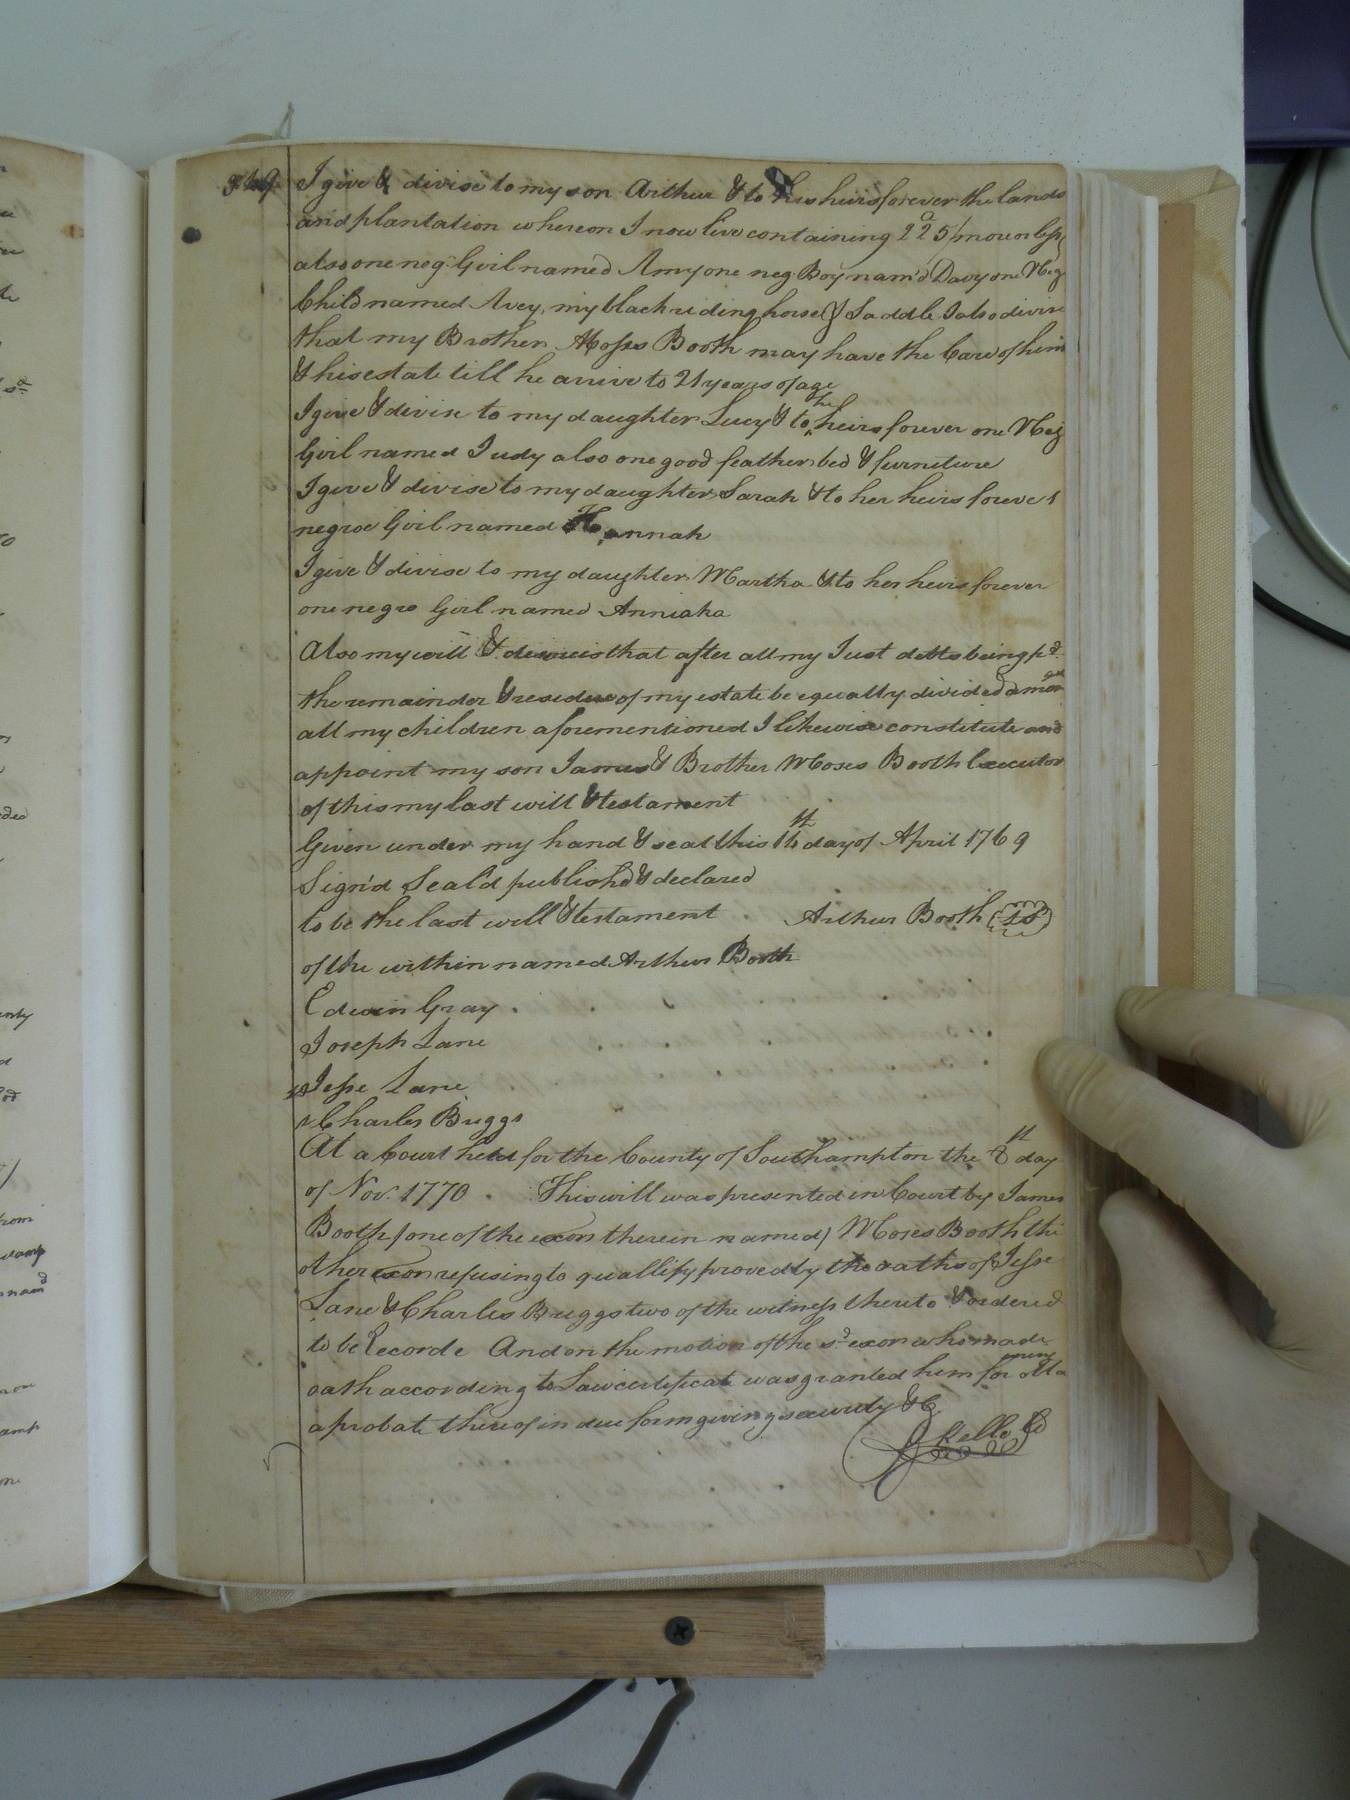 349 I give & devise to my son Arthur & to his heirs forever the lands
and plantation whereon I now live containing 225 a/ more or less,
also one neg. Girl named Amy one neg. Boy nam'd Davy one Neg
Child named Avey, my black riding horse & Saddle I also divise
that my Brother Moses Booth may have the Care of him
& his estate till he arrive to 21 years of age
I give & divise to my daughter Lucy & to her heirs forever one Neg
Girl named Judy also one good feather bed & furniture
I give & divise to my daughter Sarah & to her heirs forever 1
negroe Girl named Hannah
I give & divise to my daughter Martha & to her heirs forever
one negro Girl named Anniaka
Also my will & desire is that after all my Just debts being pd.
the remainder & residue of my estate be equally divided among
all my children aforementioned I likewise constitute and
appoint my son James & Brother Moses Booth Executor
of this my last will & testament
Given under my hand & seal this 16th day of April 1769
Sign'd Seal'd publish'd & declared
to be the last will & testament . Arthur Booth LS
of the within named Arthur Booth
Edwin Gray .
Joseph Lane
Jesse Lane
Charles Buggs
At a Court held for the County of Southampton the 8th day
of Nov. 1770 . This will was presented in Court by James
Booth / one of the exors therein named / Moses Booth the
other exor refusing to quallify proved by the oaths of Jesse
Lane & Charles Buggs two of the witness thereto & ordered
to be Recorde And on the motion of the sd. exor who made
oath according to Law certificat was granted him for
a probate thereof in due form giving security &c